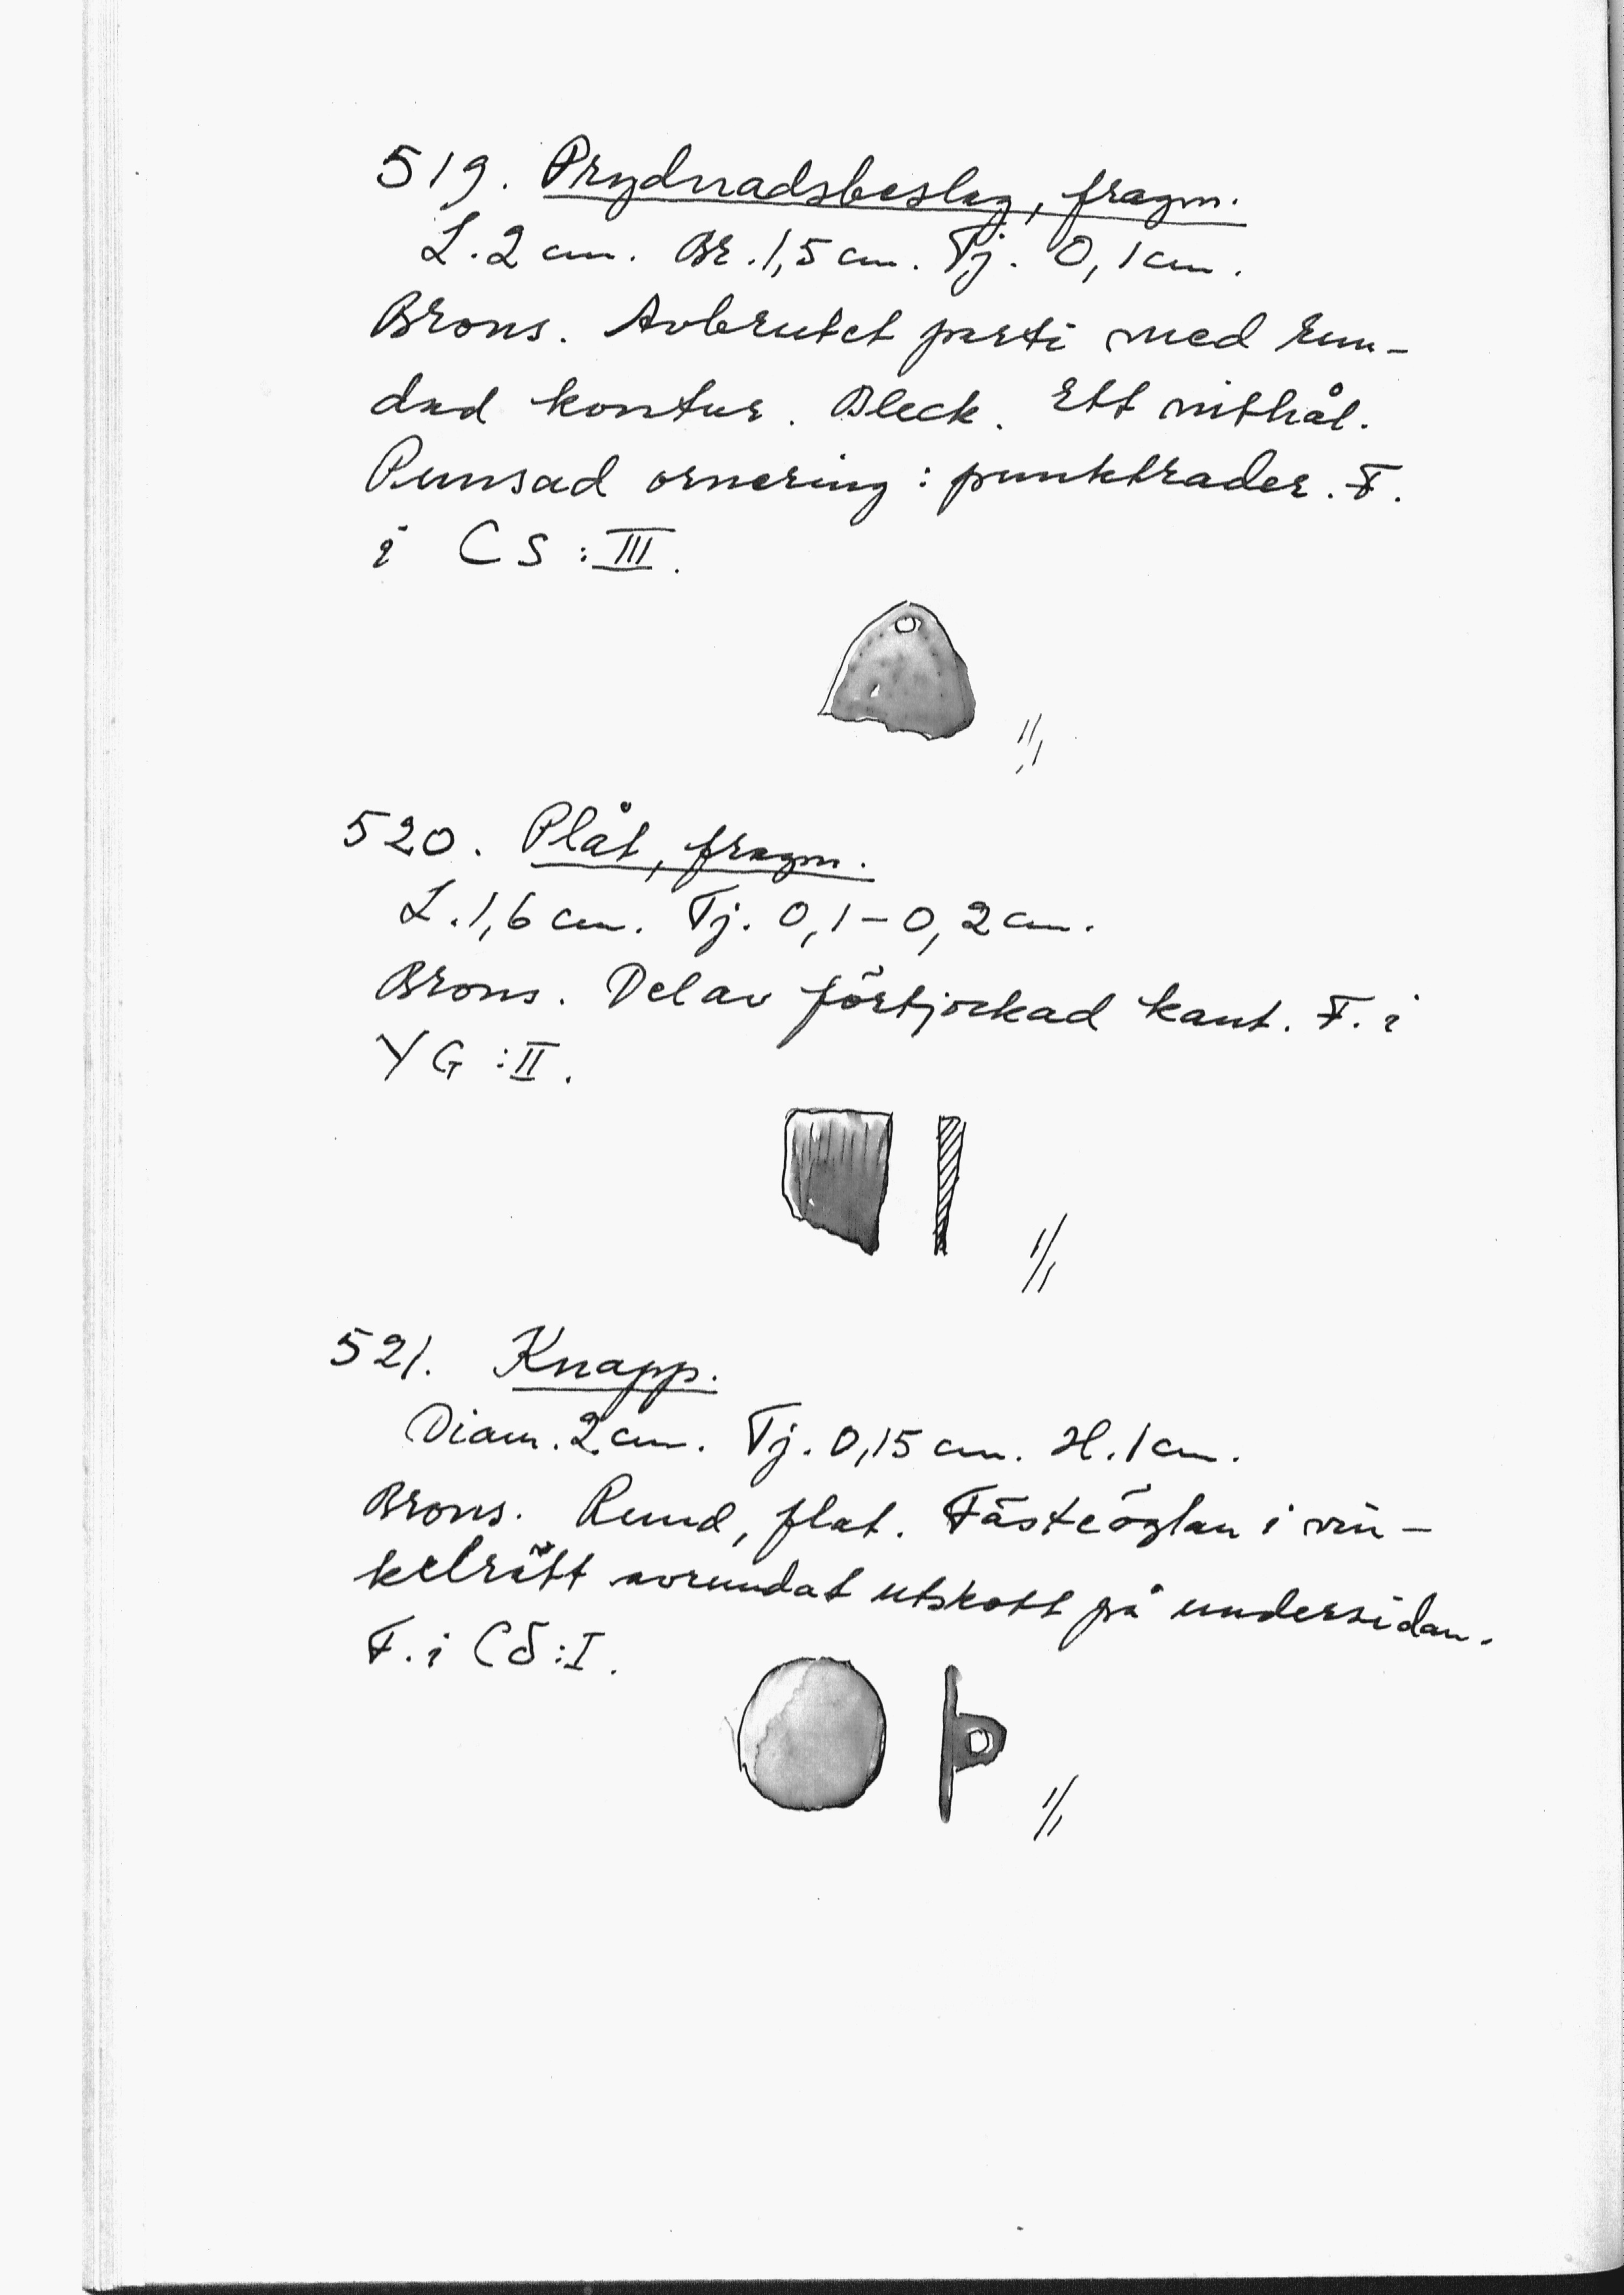 519. Prydnadsbeslag, fragm.
L. 2 cm. Br. 1,5 cm. Tj. 0,1 cm.
Brons. Avbrutet parti med run-
dad kontur. Bleck. Ett nithål.
Punsad ornering : punktrader. F.
i CS : III.
1/1
520. Plåt, fragm.
L. 1,6 cm. Tj. 0,1 – 0,2 cm.
Brons. Del av förtjockad kant. F. i
YG : II.
1/1
521. Knapp.
Diam. 2 cm. Tj. 0,15 cm. H. 1 cm.
Brons. Rund, flat. Fästeöglan i vin-
kelrätt avrundat utskott på undersidan.
F. i CÖ : I.
1/1